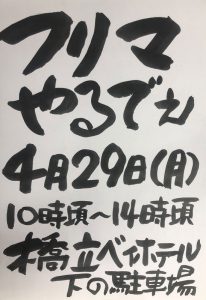 フリマ
やるでぇ
4月29日(月)
10時頃〜14時頃
橋立ベイホテル
下の駐車場